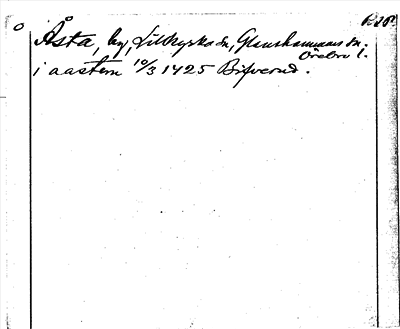 Åsta, by, Lillkyrka sn, Glanshammars hd.
Örebro l.
i aastom 10/3 1425 Bifverud.